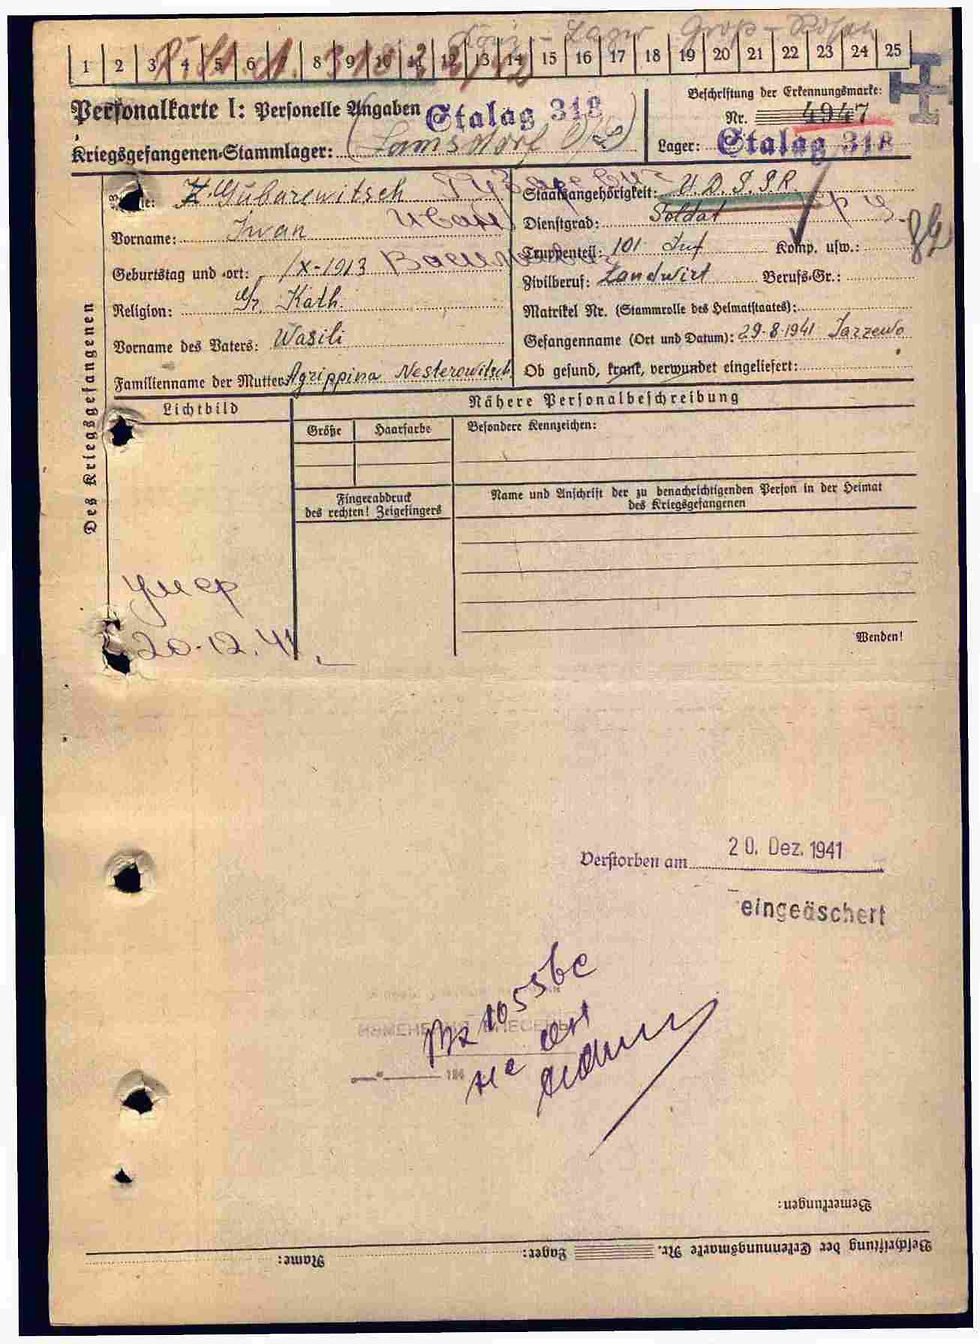 1 2 3 4 5 6 7 8 9 10 11 12 13 14 15 16 17 18 19 20 21 22 23 24 25
Personalkarte I: Personelle Angaben
Stalag 318
(Lamsdorf O/S)
Kriegsgefangenen-Stammlager:
Beschriftung der Erkennungsmarke:
Nr. 4947
Lager: Stalag 318
Des Kriegsgefangenen
Gubarewitsch
Vorname: Iwan Иван
Geburtstag und -ort: /X-1913
Religion: Gr. Kath.
Vorname des Vaters: Wasili
Familienname der Mutter: Agrippina Nesterowitsch
Staatsangehörigkeit: U.D.S.S.R.
Dienstgrad: Soldat
Truppenteil: 101 Inf Komp. usw.:
Zivilberuf: Landwirt Berufs-Gr.:
Matrikel Nr. (Stammrolle des Heimatstaates):
Gefangenname (Ort und Datum): 29-8-1941 Jarzewo
Ob gesund, krank, verwundet eingeliefert:
Lichtbild
Nähere Personalbeschreibung
Größe
Haarfarbe
Besondere Kennzeichen:
Fingerabdruck
des rechten! Zeigefingers
Name und Anschrift der zu benachrichtigenden Person in der Heimat
des Kriegsgefangenen
Wenden!
умер
20.12.41
Verstorben am 20. Dez. 1941
eingeäschert
Bemerkungen:
Beschriftung der Erkennungsmarke Nr. Lager: Name: